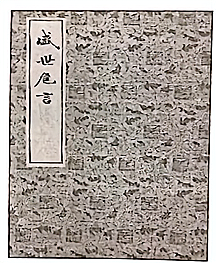 盛世危言